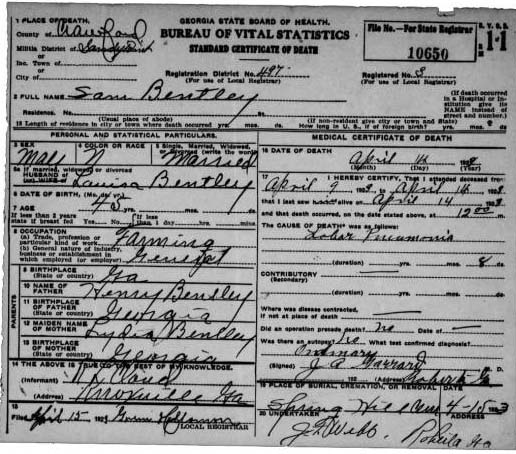 1 PLACE OF DEATH, GEORGIA STATE BOARD OF HEALTH.
County of Crawford BUREAU OF VITAL STATISTICS File No.—For State Registrar
Militia District of STANDARD CERTIFICATE OF DEATH 10650
Inc. Town of Registration District No. 497 Registered No. 8
City of (For use of Local Registrar) (For use of Local Registrar)
2 FULL NAME Sam Bentley (If death occurred in a Hospital or Institution give its NAME instead of street and number.)
Residence. No. (Usual place of abode) St. (If non-resident give city or town and State)
15 Length of residence in city or town where death occurred yrs. mos. ds. How long in U. S., if of foreign birth? yrs. mos. ds.
PERSONAL AND STATISTICAL PARTICULARS.
3 SEX 4 COLOR OR RACE 5 Single, Married, Widowed,
Male N Married
5a If married, widowed or divorced
HUSBAND OF Louisa Bentley
6 DATE OF BIRTH, (Mo., day, yr.)
7 AGE 43
If less than 2 years state if breast fed Yes No If less than 1 day, hrs. mins.
8 OCCUPATION
(a) Trade, profession or particular kind of work Farming
(b) General nature of industry, business or establishment in which employed (or employer) General
9 BIRTHPLACE (State or country) Ga
PARENTS
10 NAME OF FATHER Henry Bentley
11 BIRTHPLACE OF FATHER (State or country) Georgia
12 MAIDEN NAME OF MOTHER Lydia Bentley
13 BIRTHPLACE OF MOTHER (State or country) Georgia
14 THE ABOVE IS TRUE TO THE BEST OF MY KNOWLEDGE.
(Informant)
(Address) Knoxville Ga
15 Filed April 15, 192
LOCAL REGISTRAR
MEDICAL CERTIFICATE OF DEATH
16 DATE OF DEATH April 14 1928
(Month) (Day) (Year)
17 I HEREBY CERTIFY, That I attended deceased from
April 9 1928, to April 14 1928
that I last saw alive on April 14 1928
and that death occurred, on the date stated above, at 12 00 m.
The CAUSE OF DEATH was as follows:
Lobar Pneumonia
(duration) yrs. mos. 8 ds.
CONTRIBUTORY
(Secondary)
(duration) yrs. mos. ds.
Where was disease contracted,
if not at place of death?
Did an operation precede death? no Date of —
Was there an autopsy? no What test confirmed diagnosis?
(Signed) J A M. D.
192 (Address) Roberta Ga
19 PLACE OF BURIAL, CREMATION, OR REMOVAL
Spring Hill Cem 4-15-
20 UNDERTAKER ADDRESS
J F Webb Roberta Ga